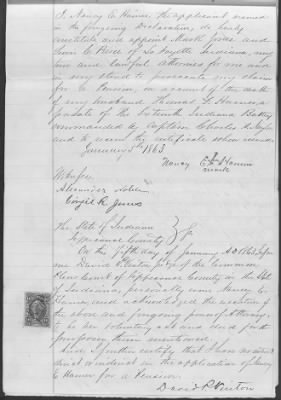 I, Nancy E Hamer, the applicant named
in the foregoing Declaration, do hereby
constitute and appoint Mark Jones and
C Reed of La Fayette Indiana, my
true and lawful Attorneys for me and
in my stead to prosecute my claim
for a Pension, on account of the death
of my husband Thomas F. Hamer, a
private of the Sixteenth Indiana Battery
commanded by Captain Charles A. Naylor
and to receive the certificate when issued
January 5th 1863
Nancy E Hamer
mark
Witness
Alexander
Virgil R. Jones
The State of Indiana
Tippecanoe County } ss
On this fifth day of January A D 1863, before
me David P Vinton, Judge of the Common
Pleas Court of Tippecanoe County in the State
of Indiana, personally came Nancy E.
Hamer, and acknowledged the execution of
the above and foregoing power of Attorney,
to be her voluntary act and deed for the
purposes therein mentioned.
And I further certify that I have no inter
est in the application of Nancy
E Hamer for a Pension.
David P. Vinton